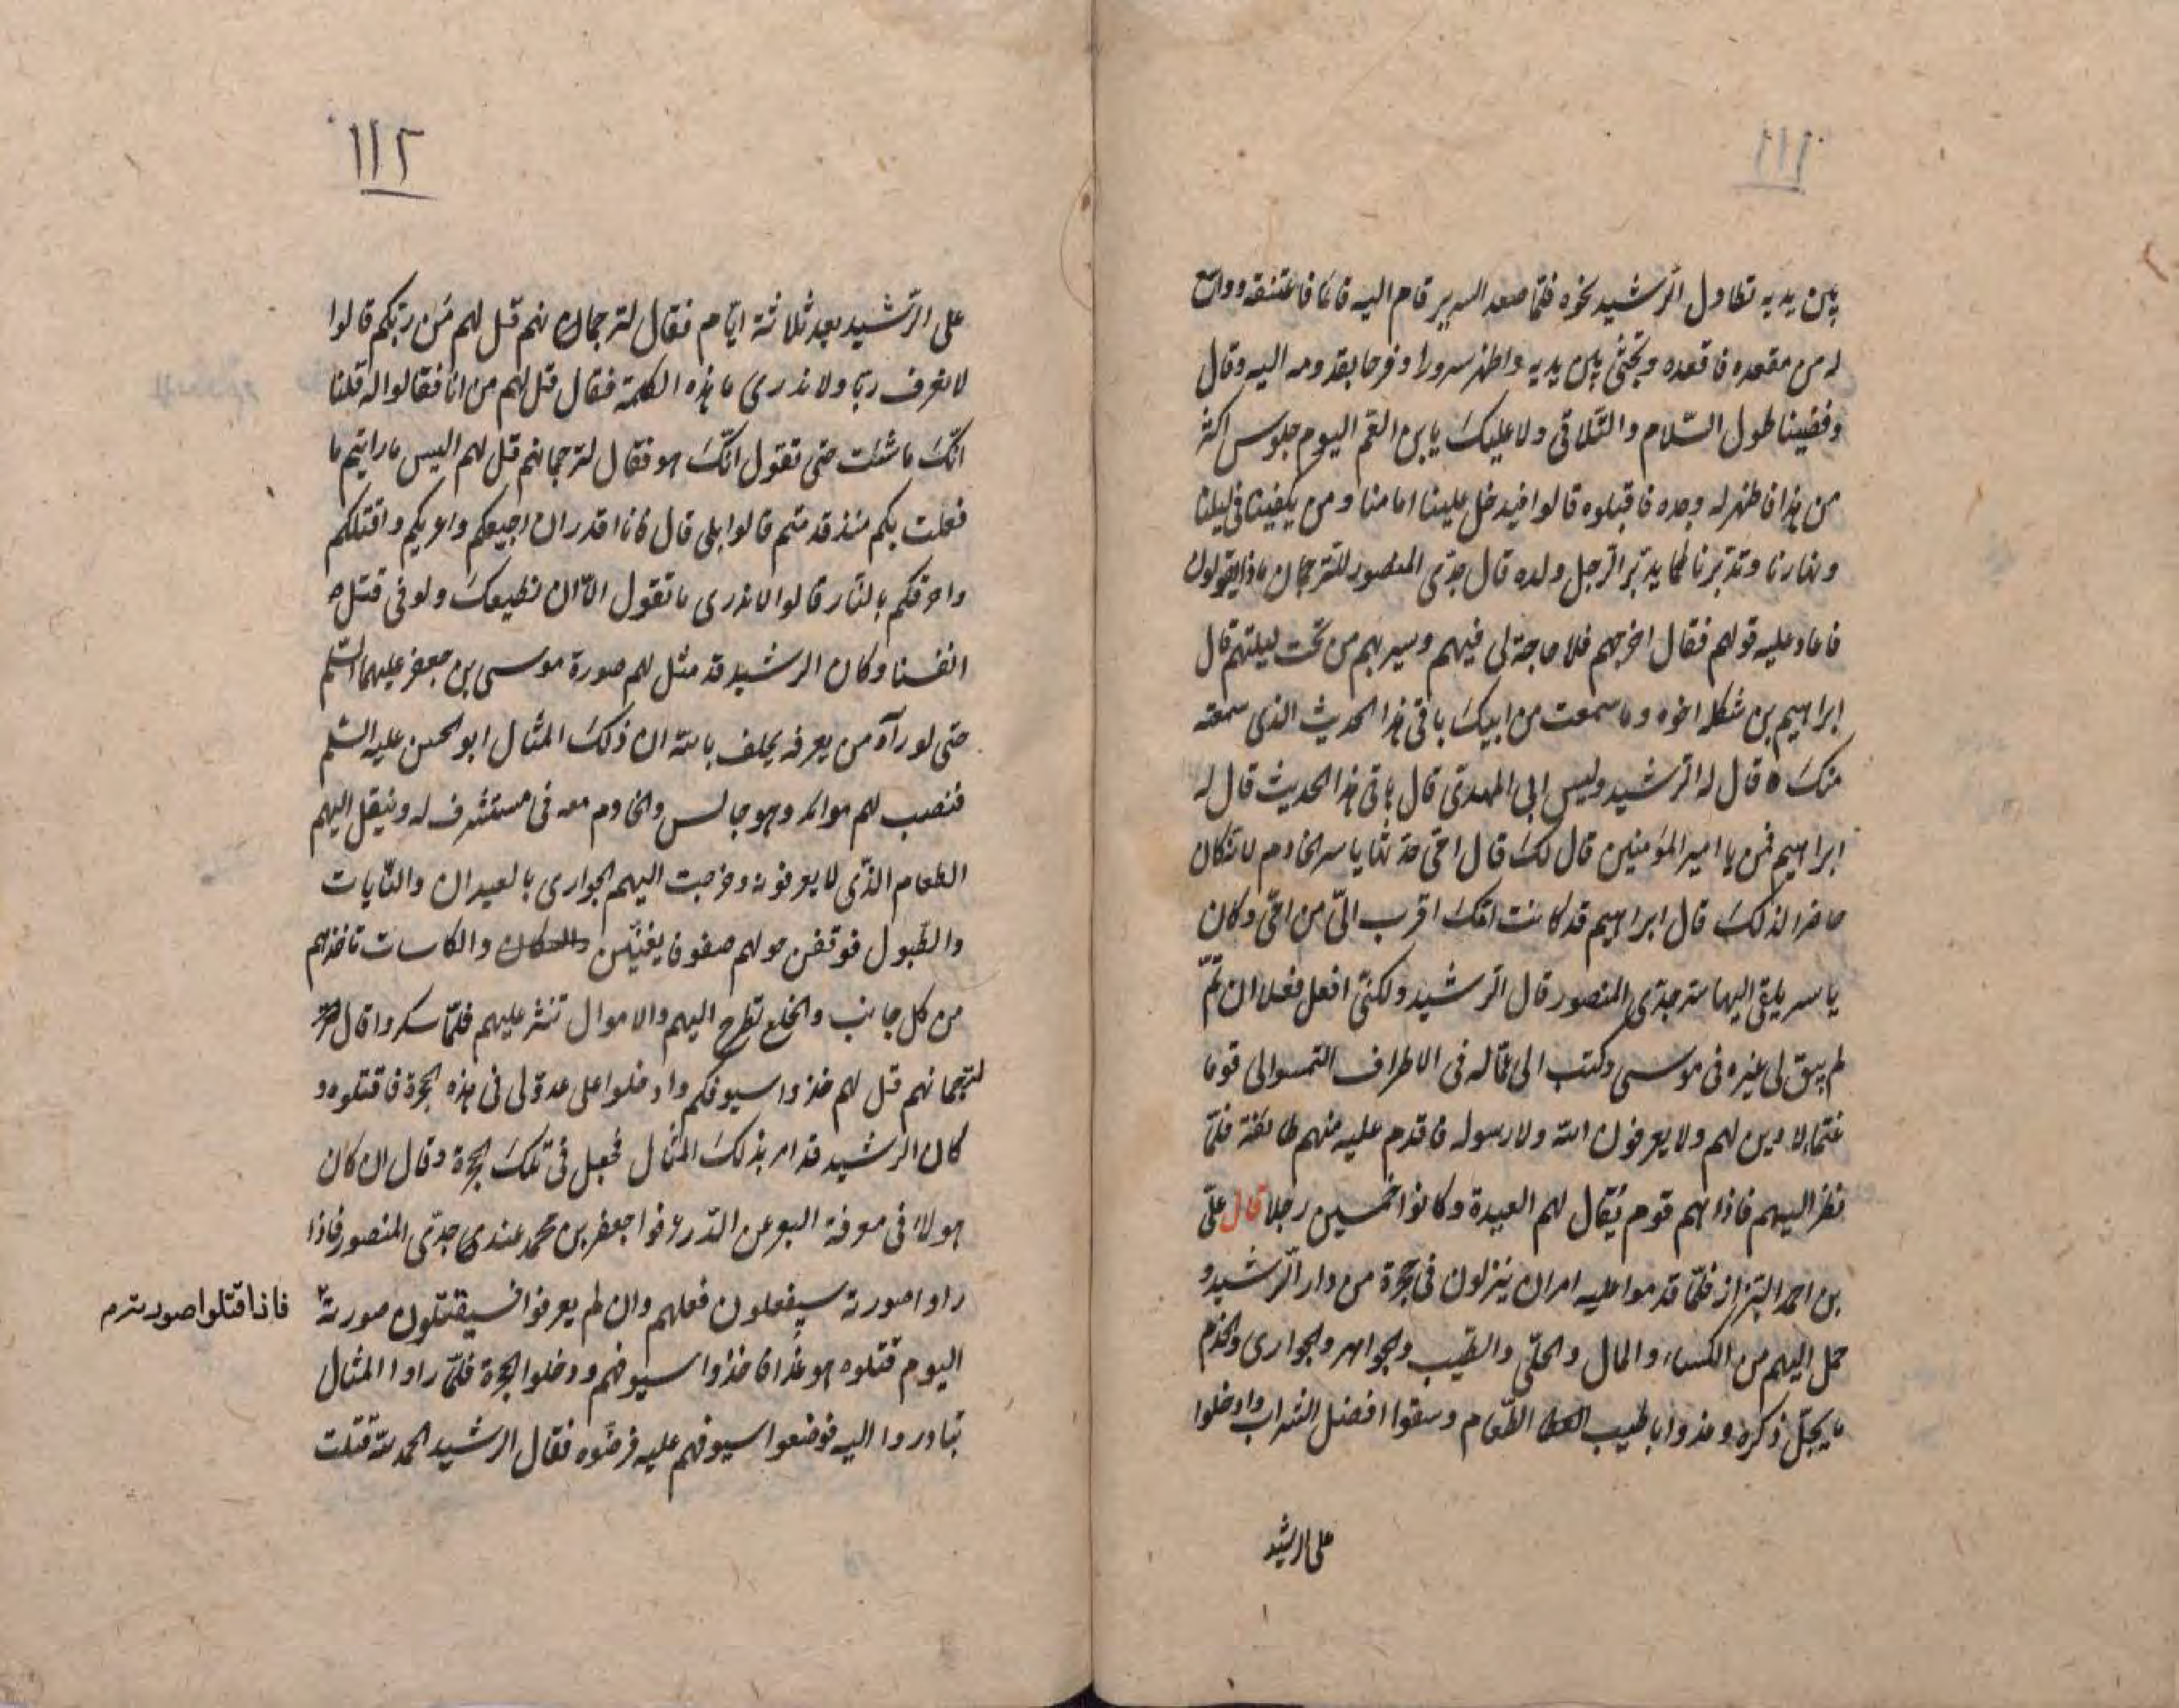 ١١١
بين يديه تطاول الرشيد نحوه فلما صعد السرير قام اليه قائما فاعتنقه ووسع
له من مقعده فاقعده وتجثى بين يديه واظهر سرورا وفرحا بقدومه اليه وقال
وقضينا طول السّلام والتّلاقى ولا عليكَ يابن العمّ اليوم جلوس اكثر
من هذا فاظهر له وجده فاقبلوه قالوا فيدخل علينا امامنا ومن يكفينا فى ليلنا
ونهارنا وتدبرنا كما يدبّر الرّجل ولده قال جدّى المنصور للترجمان ماذا يقولون
فاعاد عليه قولهم فقال اخرجهم فلا حاجة لى فيهم وسير بهم من تحت ليلتهم قال
ابراهيم بن شكله اخوه وما سمعت من ابيكَ باقى هذا الحديث الذى سمعته
منكَ ه قال له الرّشيد وليس ابى المهدىّ قال باقى هذا الحديث قال له
ابراهيم فمن يا امير المؤمنين قال لكَ قال امّى حدثتنا ياسر الخادم لانه كان
حاضرا لذلكَ قال ابراهيم قد كانت امّكَ اقرب الىّ من امّى وكان
ياسر يلقى اليها سر جدّى المنصور قال الرّشيد ولكنّى افعل فعلا ان تمّ
لم يبق لى غيره فى موسى وكتب الى عمّاله فى الاطراف التمسوا لى قوما
غتما لا دين لهم ولا يعرفون الله ولا رسوله فاقدم عليه منهم طائفة فلمّا
نظر اليهم فاذا هم قوم يقال لهم العبدة وكانوا خمسين رجلا قال علىّ
بن احمد البزّاز فلمّا قدموا عليه امر ان ينزلون فى حجرة من دار الرّشيد و
حمل اليهم من الكساء والمال والحلّى والطّيب والجواهر والجوارى والخدم
ما يجلّ ذكره وغذوا باطيب الطّعام وسقوا افضل الشراب وادخلوا
على الرشيد
١١٢
على الرّشيد بعد ثلاثة ايّام فقال لترجمانهم قل لهم مَن ربّكم قالوا
لا نعرف ربّا ولا ندرى ما هذه الكلمة فقال قل لهم من انا فقالوا له قلنا
انّكَ ما شئت حتى نقول انّكَ هو فقال لترجمانهم قل لهم اليس ما رايتم ما
فعلت بكم منذ قدمتم قالوا بلى قال فانا اقدر ان اجيعكم واعريكم واقتلكم
واحرقكم بالنّار قالوا لا ندرى ما تقول الّا ان نطيعكَ ولو فى قتل
انفسنا وكان الرشيد قد مثل لهم صورة موسى بن جعفر عليهما السّلم
حتى لو رآه من يعرفه يحلف بالله ان ذلكَ المثال ابو الحسن عليه السّلم
فنصب لهم موائد وهو جالس والخادم معه فى مستشرف له وينقل اليهم
الطّعام الذّى لا يعرفونه وخرجت اليهم الجوارى بالعيدان والنّايات
والطّبول فوقفن حولهم صفوفا يغنيّن والكاسات تاخذهم
من كل جانب والخلع تطرح اليهم والاموال تنثر عليهم فلمّا سكروا قال
لترجمانهم قل لهم خذوا سيوفكم وادخلوا على عدوّلى فى هذه الحجرة فاقتلوه و
كان الرشيد قد امر بذلكَ المثال فجعل فى تلكَ الحجرة وقال ان كان
هولاء فى معرفة عرفوا جعفر بن محمد عند جدّى المنصور فاذا
راوا صورته سيفعلون فعلهم وان لم يعرفوا فسيقتلون صورتهٌ
فاذا قتلوا صورته
اليوم قتلوه هو غدا فاخذوا سيوفهم ودخلوا الحجرة فلمّا راوا المثال
تبادروا اليه فوضعوا سيوفهم عليه فرضّوه فقال الرشيد الحمد لله قتلت